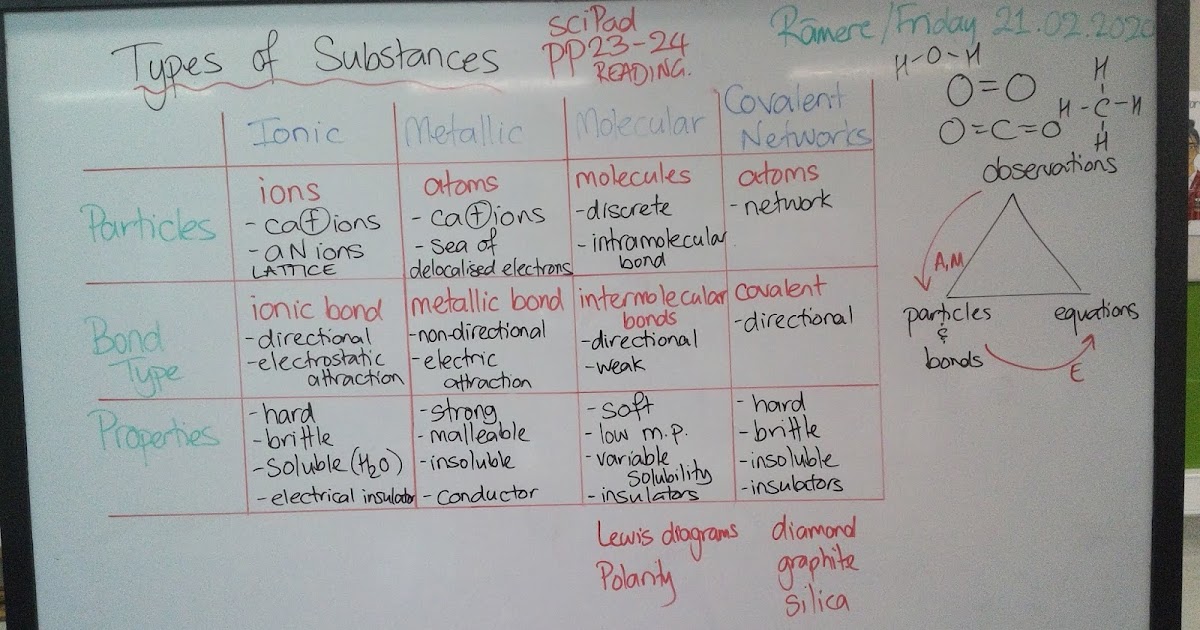 Types of Substances
sciPad
PP23-24
READING.
Rāmere/Friday 21.02.2020
H-O-H
O=O
O=C=O
H
H-C-H
H
Ionic
Metallic
Molecular
Covalent
Networks
Particles
ions
- ca+ions
- aNions
LATTICE
atoms
- ca+ions
- sea of
delocalised electrons
molecules
-discrete
- intramolecular
bond
atoms
- network
Bond
Type
ionic bond
-directional
-electrostatic
attraction
metallic bond
-non-directional
-electric
attraction
intermolecular
bonds
-directional
-weak
covalent
-directional
Properties
-hard
-brittle
-soluble (H2O)
-electrical insulator
-strong
-malleable
-insoluble
-conductor
-soft
-low m.p.
-variable
solubility
-insulators
-hard
-brittle
-insoluble
-insulators
Lewis diagrams
Polarity
diamond
graphite
silica
observations
A,M
particles
&
bonds
equations
E